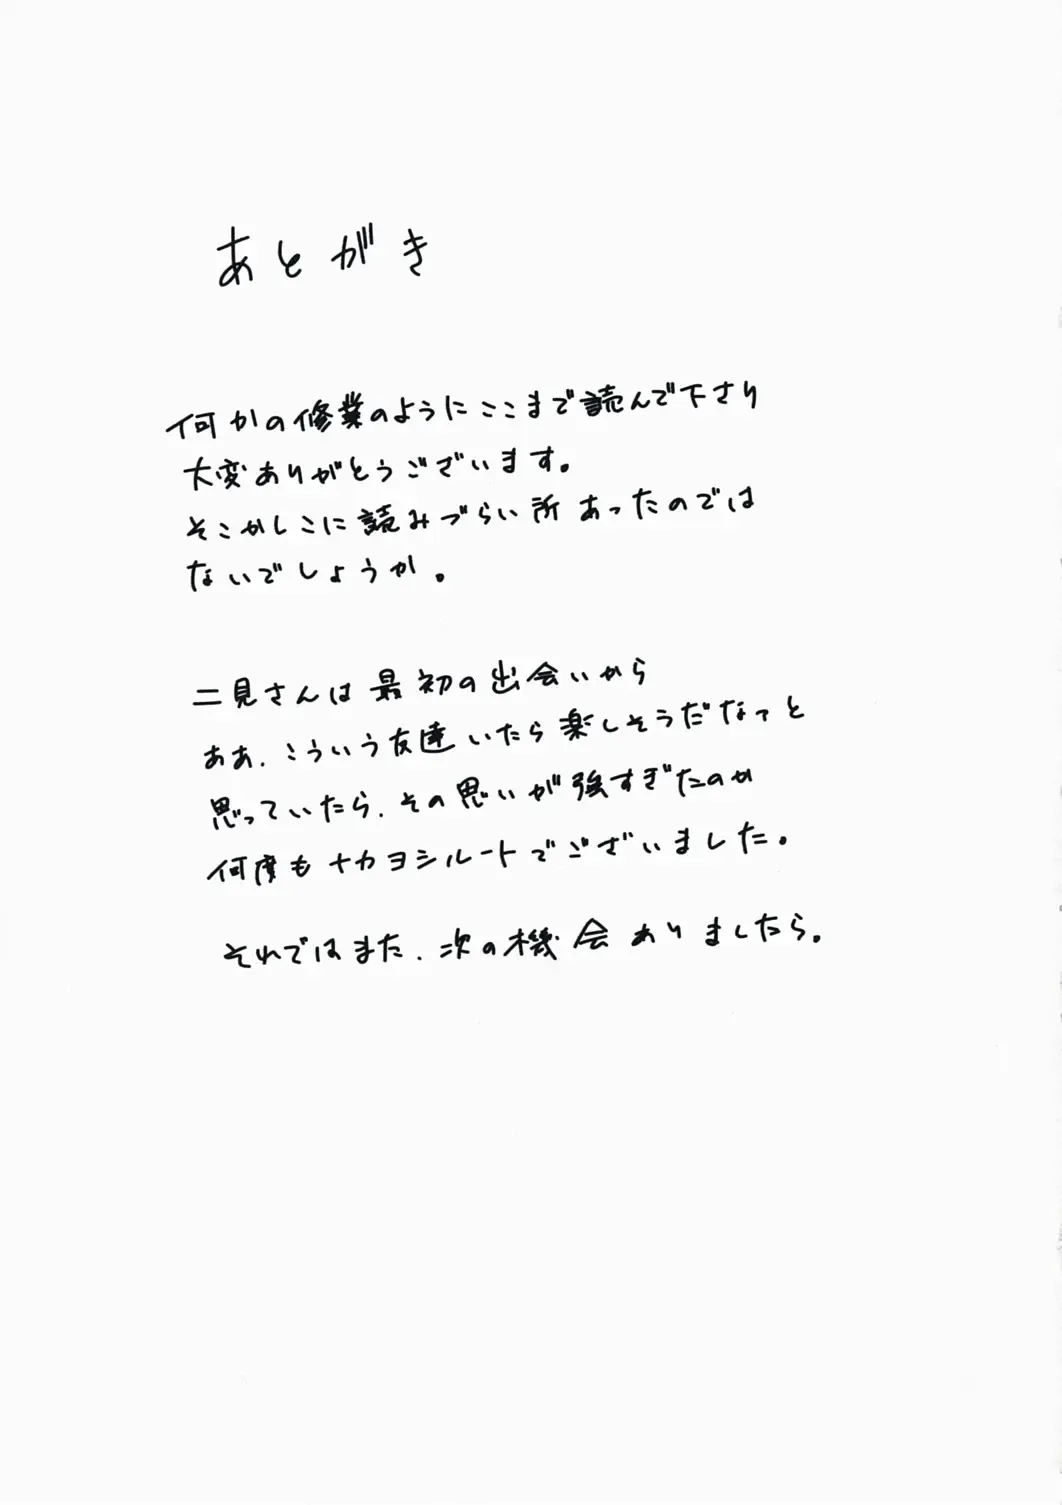 あとがき
何かの修業のようにここまで読んで下さり
大変ありがとうございます。
そこかしこに読みづらい所あったのでは
ないでしょうか。
二見さんは最初の出会いから
ああ、こういう友達いたら楽しそうだなっと
思っていたら、その思いが強すぎたのか
何度もナカヨシルートでございました。
それではまた、次の機会ありましたら。